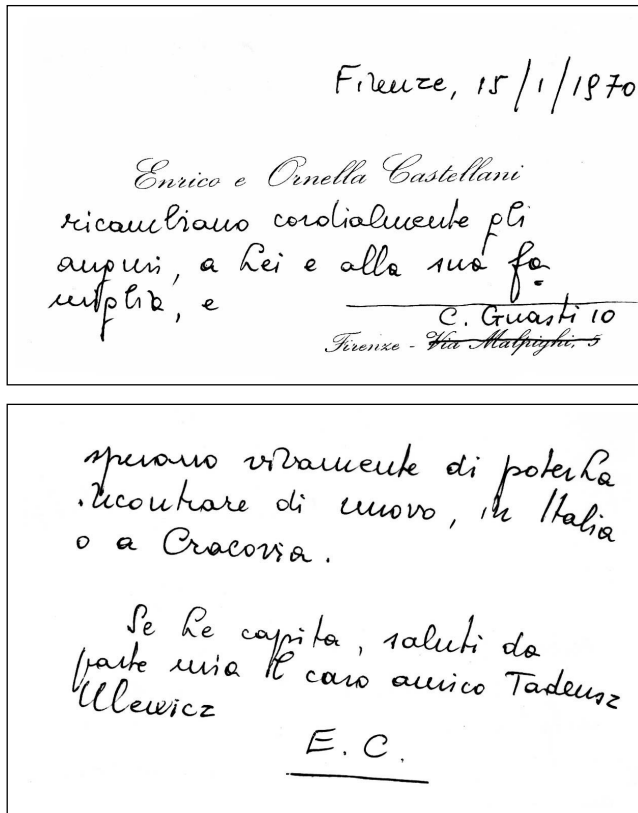 Firenze, 15/1/1970
Enrico e Ornella Castellani
ricambiano cordialmente gli
auguri, a Lei e alla sua fa-
miglia, e
C. Guasti 10
Firenze - Via Malpighi, 5
sperano vivamente di poterLa
incontrare di nuovo, in Italia
o a Cracovia.
Se Le capita, saluti da
parte mia il caro amico Tadeusz
Ulewicz
E. C.